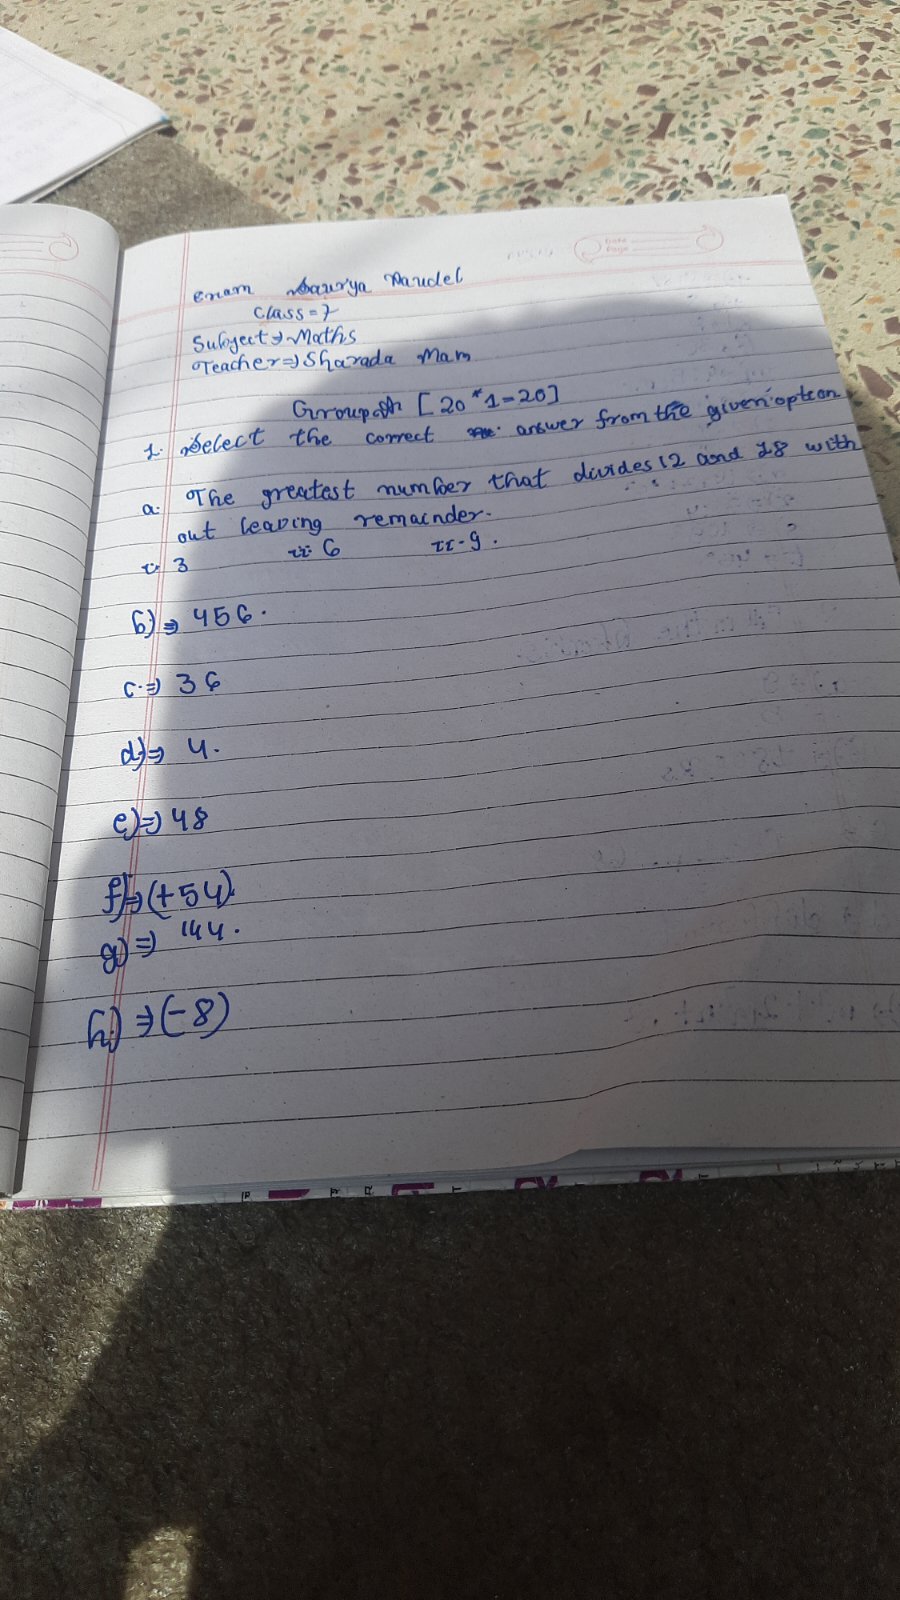 Saurya Paudel
Class=7
Subject⇒Maths
Teacher⇒Sharada Mam
Group [20*1=20]
1. Select the correct answer from the given option
a. The greatest number that divides 12 and 18 with
out leaving remainder.
i. 3 ii. 6 II. 9.
b)⇒ 456.
c.⇒ 36
d)⇒ 4.
e)⇒ 48
f)⇒(+54).
g)⇒ 144.
h)⇒(-8)